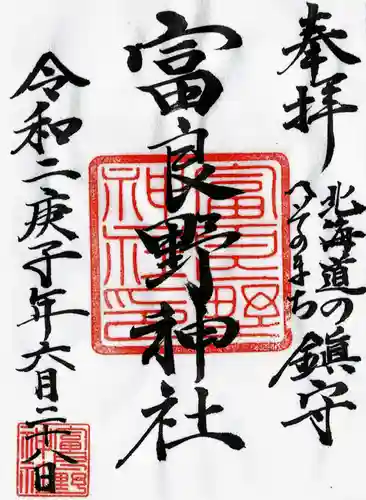 奉拝
北海道の
へそのまち
鎮守
富良野神社
富良野神社印
令和二庚子年六月二十八日
富良野神社